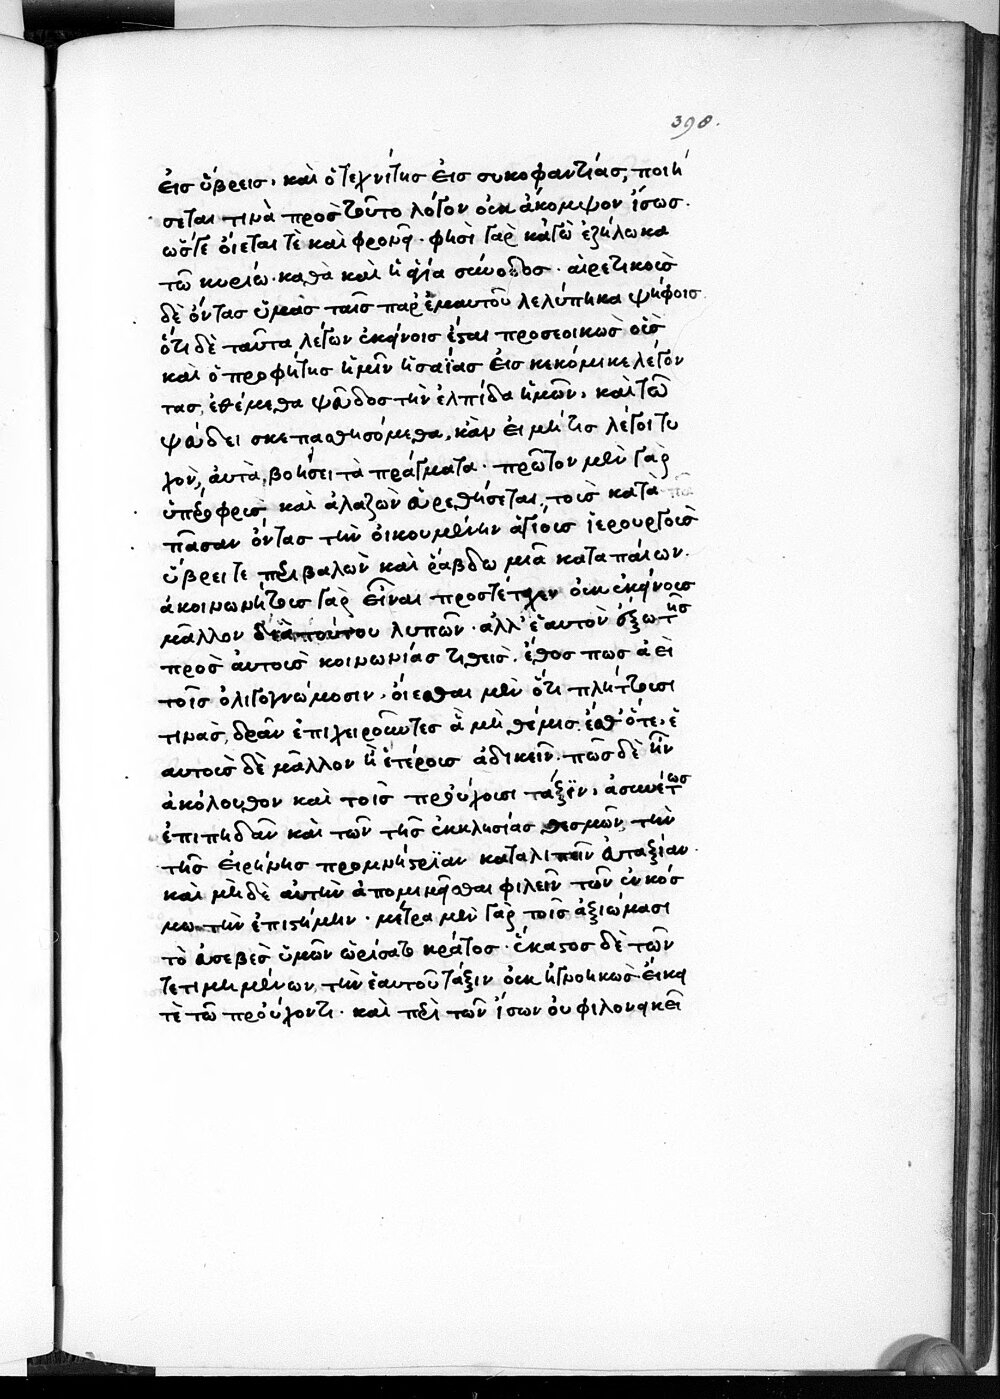 398.
εἰς ὕβρεις, καὶ ὁ τεχνίτης εἰς συκοφαντίας, ποιή
σεται τινὰ πρὸς τοῦτο λόγον οὐκ ἄκομψον ἴσως.
ὥς γε οἴεταί τε καὶ φρονεῖ. φησὶ γὰρ κἀγὼ ἐζήλωκα
τῶ κυρίω. καθὰ καὶ ἡ ἁγία σύνοδος. αἱρετικοὺς
δὲ ὄντας ὑμᾶς ταῖς παρ' ἐμαυτοῦ λελύπηκα ψήφοις
ὅτι δὲ ταῦτα λέγων ἐκείνοις ἔσται προσεοικὼς οὓς
καὶ ὁ προφήτης ἡμῖν ἡσαΐας εἰσκεκόμικε λέγον
τας, ἐθέμεθα ψεῦδος τὴν ἐλπίδα ἡμῶν, καὶ τῶ
ψεύδει σκεπασθησόμεθα, κἂν εἰ μή τις λέγοι τυ
χὸν, αὐτὰ βοήσει τὰ πράγματα. πρῶτον μὲν γὰρ
ὑπέροφρις καὶ ἀλαζὼν εὑρεθήσεται, τοῖς κατὰ
πᾶσαν ὄντας τὴν οἰκουμένην ἁγίοις ἱερουργοῖς
ὕβρει τε περιβαλὼν καὶ ῥάβδω μιᾶ καταπαίων.
ἀκοινωνήτους γὰρ εἶναι προστέταχεν οὐκ ἐκείνους
μᾶλλον λυπῶν. ἀλλ' ἑαυτὸν ἔξω τῆς
πρὸς αὐτοὺς κοινωνίας τιθεὶς. ἔθος πως ἀεὶ
τοῖς ὀλιγογνώμοσιν, οἴεσθαι μὲν ὅτι πλήττουσι
τινὰς, δρᾶν ἐπιχειροῦντες ἃ μὴ θέμις ἐσθ' ὅτε, ἑ
αυτοὺς δὲ μᾶλλον ἢ ἑτέρους ἀδικεῖν. πῶς δὲ ἦν
ἀκόλουθον καὶ τοῖς προύχουσι τάξιν, ἀσυνέτως
ἐπιπηδᾶν καὶ τῶν τῆς ἐκκλησίας θεσμῶν, τὴν
τῆς εἰρήνης προμνήστριαν καταλιπεῖν εὐταξίαν.
καὶ μηδὲ αὐτὴν ἀπομιμεῖσθαι φιλεῖν τῶν ἐν κόσ
μω τὴν ἐπιστήμην. μέτρα μὲν γὰρ τοῖς ἀξιώμασι
τὸ εὐσεβὲς ὑμῶν ὡρίσατο κράτος. ἕκαστος δὲ τῶν
τετιμημένων, τὴν ἑαυτοῦ τάξιν οὐκ ἠγνοηκὼς εἴκει
τὲ τῶ προύχοντι. καὶ περὶ τῶν ἴσων οὐ φιλονεικεῖ